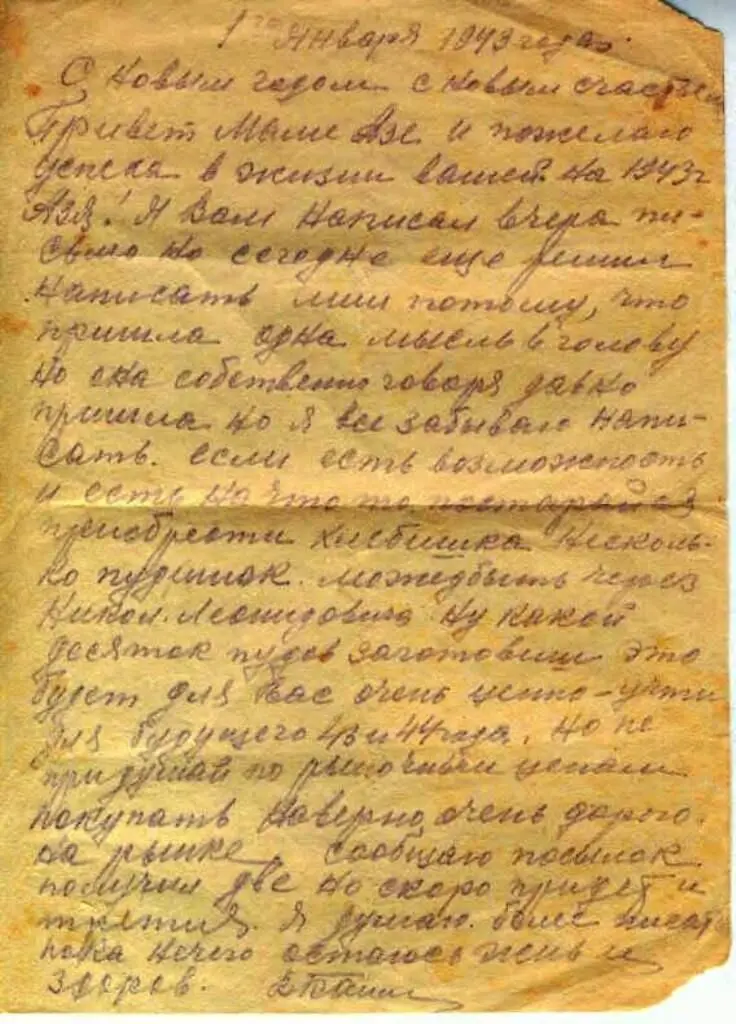 1го Января 1943 года.
С новым годом с новым счастьем
Привет Маме Азе и пожелаю
успеха в жизни вашей на 1943 г
Азя! Я Вам написал вчера пи-
сьмо но сегодне еще решил
написать потому, что
пришла одна мысль в голову
но она собственно говоря давно
пришла но я все забываю напи-
сать. если есть возможность
и есть на что то постарайся
преобрести хлебишка несколь-
ко пудишек. можедбыть через
Никол. Леонидовича ну какой
десяток пудов заготовиш это
будет для Вас очень ценно-учти
для будущего 43 и 44 года. Но не
придумай по рыночным ценам
покупать наверно очень дорого.
на рынке, сообщаю посылок
получил две но скоро придет и
третия. Я думаю. более писат
пока нечего остаюсь жив и
здоров.